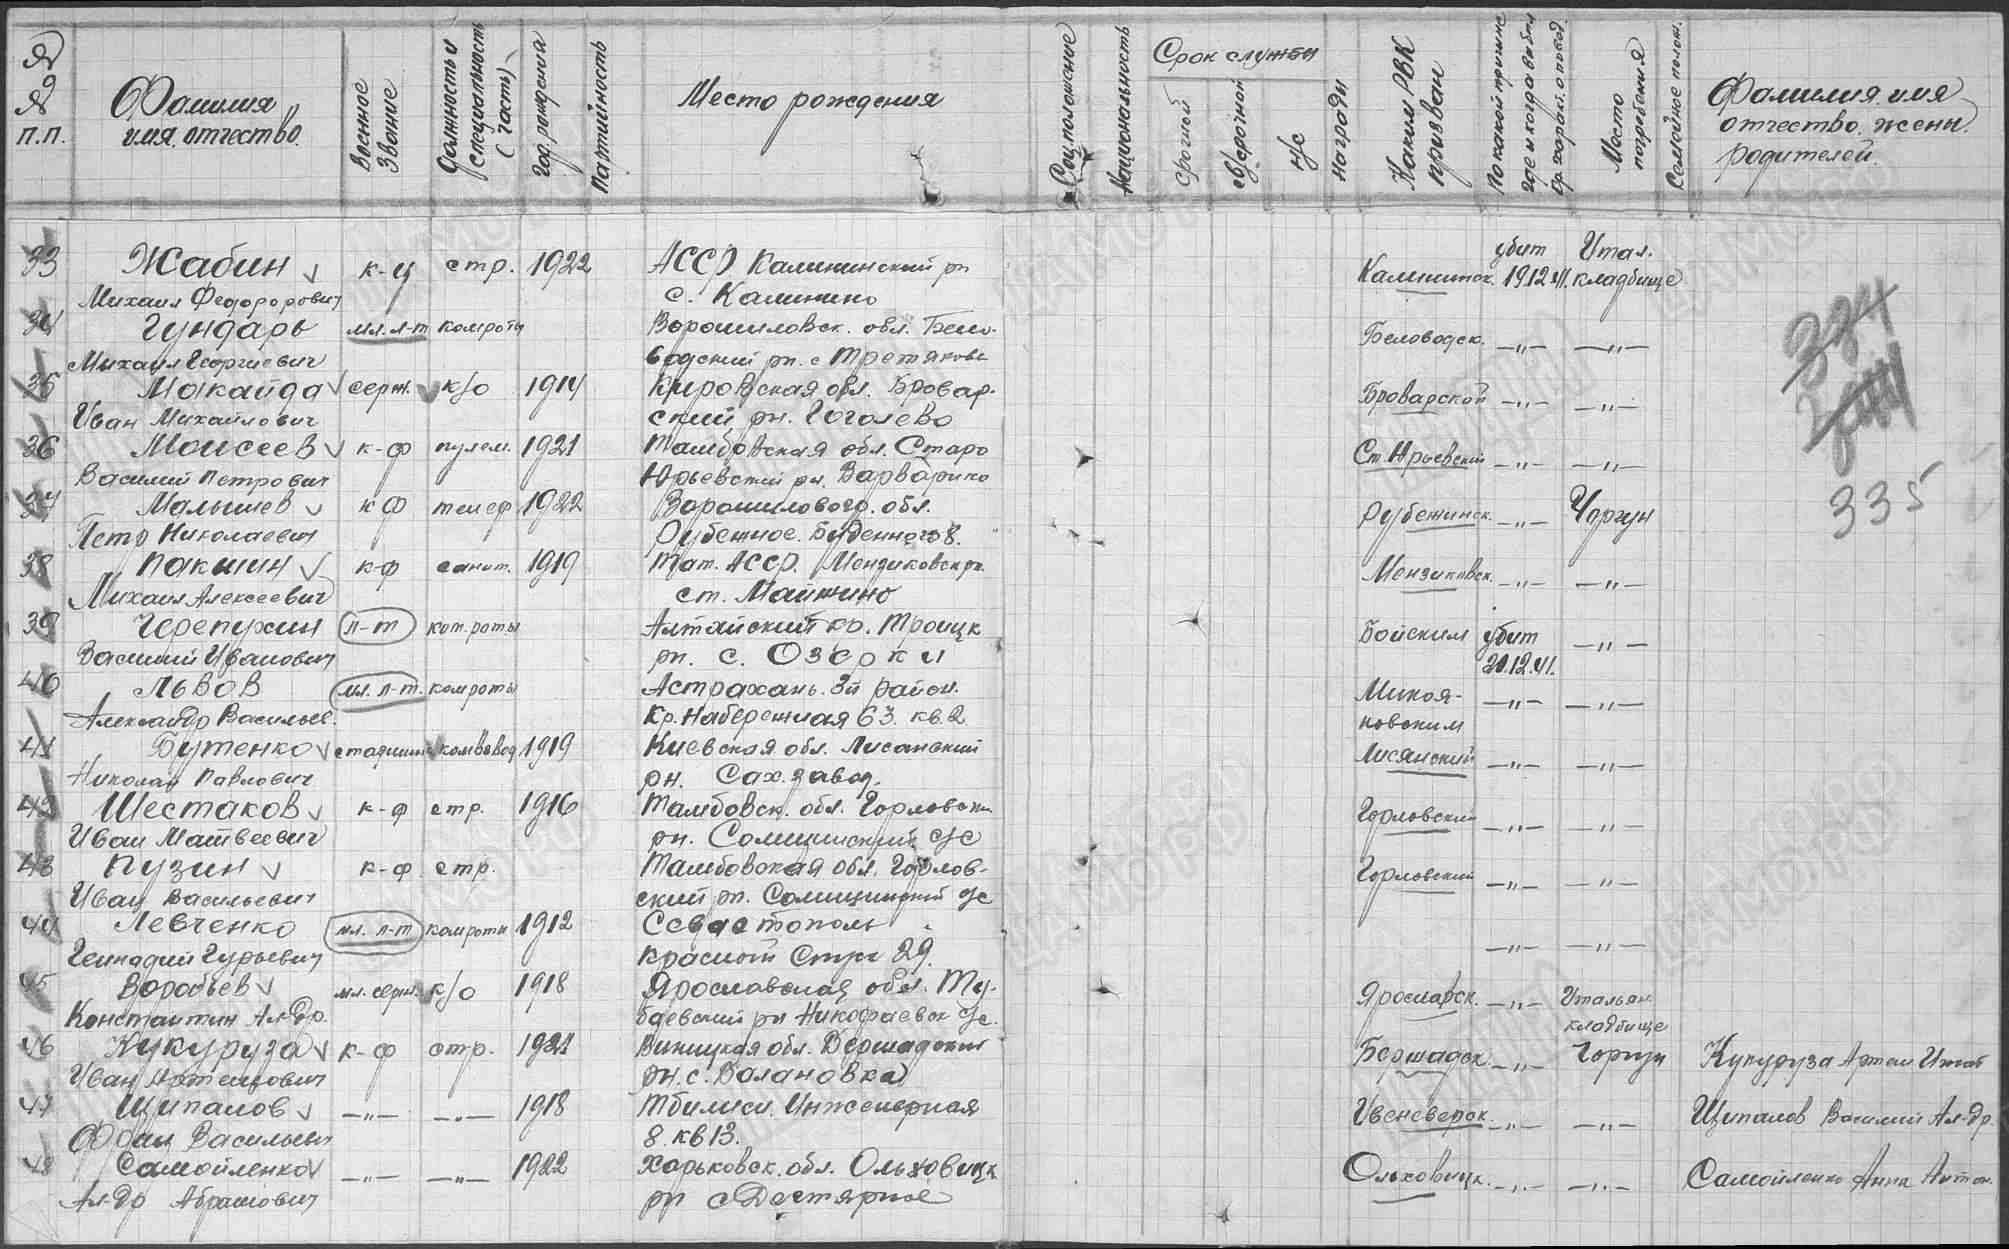 № №
п.п.
Фамилия
имя. отчество.
Военное
Звание
Должность и
специальность
(часть)
Год рождения
Партийность
Место рождения
Соц.положение
Национальность
Срок службы
срочной
св/срочной
н/с
награды
Каким РВК
призван
По какой причине
где и когда выбыл
Место
погребения
Семейное полож.
Фамилия, имя
отчество. жены.
родителей.
33 Жабин к-ц стр. 1922 АССР Калининский рн Калининск. убит 19.12.41. Итал. кладбище
Михаил Федорорович с. Калинино
34 Гундарь мл. л-т комроты Ворошиловск. обл. Бело- Беловодск. -"- -"-
Михаил Георгиевич водский рн. с Третяковк
35 Макайда серж. к/о 1914 Кировская обл. Бровар- Броварской -"- -"-
Иван Михайлович ский рн. Гоголево
36 Моисеев к-ф пулем. 1921 Тамбовская обл. Старо Ст.Юрьевский -"- -"-
Василий Петрович Юрьевский рн. Варварино
37 Малышев к ф телеф 1922 Ворошиловогр. обл. Рубежинск. -"- Чоргун
Петр Николаевич Рубежное. Буденного 8.
38 Пакшин к-ф санит. 1919 Тат. АССР. Мензиковск рн. Мензиковск. -"- -"-
Михаил Алексеевич ст.
39 Черепухин л-т ком.роты Алтайский кр. Троицк Бойским убит 20.12.41. -"-
Василий Иванович рн. с. Озерки
40 Львов мл. л-т. комроты Астрахань. 3й район. Микоя- -"- -"-
Александр Васильев. Кр. Набережная 63. кв. 2 новским
41 Бутенко старшина комвзвод 1919 Киевская обл. Лисанский Лисянский -"- -"-
Николай Павлович рн. Сах. завод.
42 Шестаков к-ф стр. 1916 Тамбовск. обл. Горловски Горловский -"- -"-
Иван Матвеевич рн. Солицинский с/с
43 Пузин к-ф стр. Тамбовская обл. Горлов- Горловский -"- -"-
Иван Васильевич ский рн. Солицинский с/с
44 Левченко мл. л-т комроты 1912 Севастополь -"- -"-
Геннадий Гурьевич Красный Спуск 29.
45 Воробьев мл. серж. к/о 1918 Ярославская обл. Ту- Ярославск. -"- Итальян кладбище
Константин Ал-др. баевский рн Никофаевск с/с.
46 Кукуруза к-ф стр. 1921 Виницкая обл. Вершадский Бершадск -"- Чоргун Кукуруза Артем
Иван Артемович рн. с. Балановка
47 Щипалов -"- -"- 1918 Тбилиси. Инженерная -"- -"- Щипалов Василий Ал-др.
Васильев 8. кв 13.
48 Самойленко -"- -"- 1922 Харьковск. обл. Ольховицк Ольховицк. -"- -"- Самойленко Анна Антон.
Ал-др Абрамович рн с Дегтярное
334
335
ЦАМО РФ